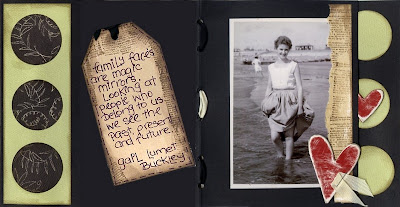 family faces
are magic
mirrors.
Looking at
people who
belong to us
we see the
past, present
and future.
gail lumet
Buckley